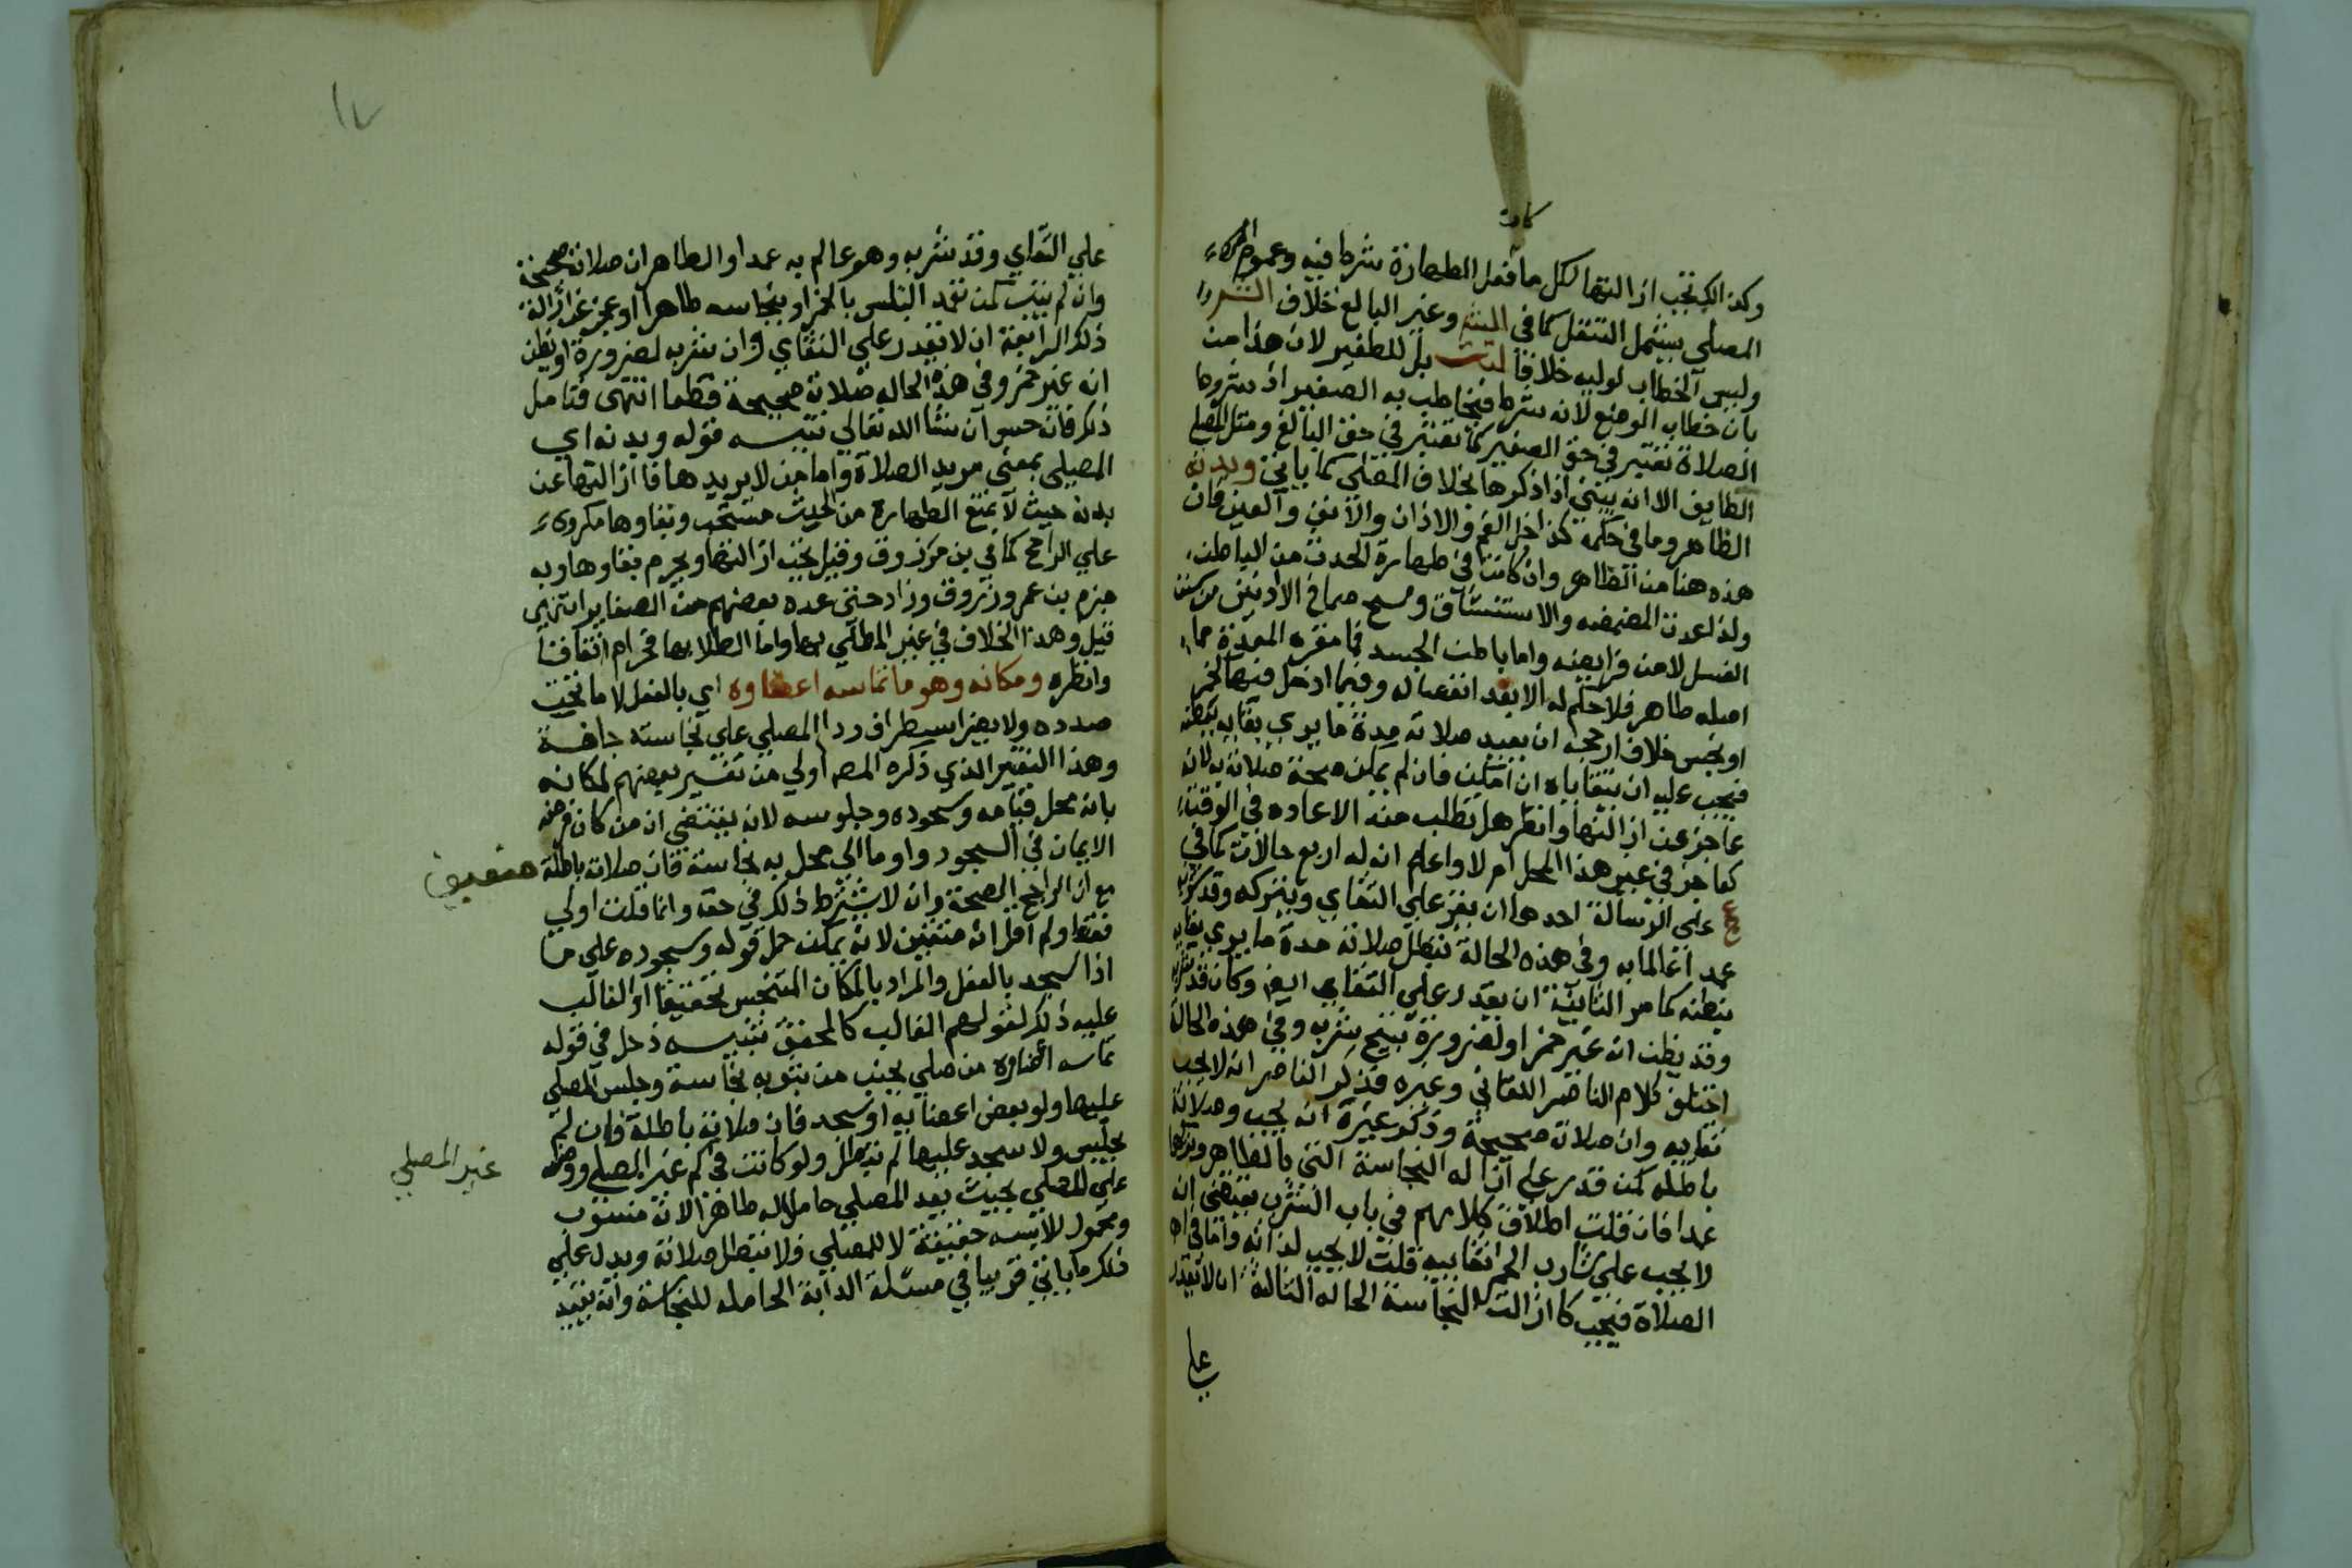 كانت
وكذا يجب ازالتها لكل ما فعل الطهارة شرط فيه وعموم
المصلي يشمل المتنفل كما في وغير البالغ خلاف
وليس الخطاب لوليه خلافا بل للصغير لان هذا من
بان خطاب الوضع لانه شرط فيخاطب به الصغير اذ شروط
الصلاة تعتبر في حق الصغير كما تعتبر في حق البالغ ومثل المصلي
الطايف الا انه يبني اذا ذكرها بخلاف المصلي كما ياتي وبدنه
الظاهر وما في حكمه كداخل الفم والاذان والانف والعين فان
هذه هنا من الظاهر وان كانت في طهارة الحدث من الباطن
ولذا عدت المضمضه والاستنشاق ومسح صماخ الاذنين من سنن
الغسل لا من فرايضه واما باطن الجسد فما مقره المعدة مما
اصله طاهر فلا حكم له الا بعد انفصاله وفيما ادخل فيها كخمر
او نجس خلاف ارجحه ان يعيد صلاته مدة ما يري بقايه ببطنه
فيجب عليه ان يتقاياه ان امكن فان لم يمكن صحة صلاته لانه
عاجز عن ازالتها وانظر هل تطلب منه الاعاده في الوقت
كعاجز في غير هذا المحل ام لا واعلم ان له اربع حالات كما في
عج على الرسالة احدها ان يقدر علي التقاي ويتركه وقد شربه
عمدا عالما به وفي هذه الحالة تبطل صلاته مدة ما يري بقايه
ببطنه كما مر الثانية ان يقدر علي التقاي ايضا وكان قد شربه
وقد يظن انه غير خمر او لضرورة تبيح شربه وفي هذه الحالة
اختلف كلام الناصر اللقاني وغيره فذكر الناصر انه لا يجب
تقايه وان صلاته صحيحة وذكر غيره انه يجب وصلاته
باطله كمن قدر علي ازالة النجاسة التي بالظاهر وتركها
عمدا فان قلت اطلاق كلامهم في باب الشرب يقتضي انه
لا يجب علي شارب الخمر تقاييه قلت لا يجب لذاته واما
الصلاة فيجب كازالت النجاسة الحاله الثالثة ان لا يقدر
علي
علي التقاي وقد شربه وهو عالم به عمدا والظاهر ان صلاته صحيحة
وان لم يتب كمن تعمد التلبس بالخمر او بنجاسه ظاهرا وعجز عن ازالة
ذلك الرابعة ان لا يقدر علي التقاي وان شربه لضرورة او يظن
انه غير خمر وفي هذه الحاله صلاته صحيحة قطعا انتهى فتامل
ذلك فانه حسن ان شا الله تعالي تنبيه قوله وبدنه اي
المصلي بمعني مريد الصلاة واما من لا يريدها فازالتها عن
بدنه حيث لا يمنع الطهارة من الحدث مستحب وبقاوها مكروه
علي الراجح كما في بن مرزوق وقيل يجب ازالتها ويحرم بقاوها وبه
جزم بن عمر وزروق وزاد حتي عده بعضهم من الصغاير انتهي
قيل وهذا الخلاف في غير المطلي بها واما الطلا بها فحرام اتفاقا
وانظره ومكانه وهو ما تماسه اعضاوه اي بالفعل لا ما تحت
صدره ولا يضر اسطراف ردا المصلي علي نجاسته جافة
وهذا التفسير الذي ذكره المصـ اولي من تفسير بعضهم لمكانه
بانه محل قيامه وسجوده وجلوسه لانه يقتضي ان من كان فرضه
الايمان في السجود واوما الي محل به نجاسة فان صلاته باطلة
مع ان الراجح الصحة وانه لا يشترط ذلك في حقه وانما قلت اولي
فقط ولم اقل انه متعين لانه يمكن حمل قوله وسجوده علي ما
اذا سجد بالفعل والمراد بالمكان المتنجس تحقيقا او الغالب
عليه ذلك لقولهم الغالب كالمحقق تنبيه دخل في قوله
تماسه اعضاوه من صلي بجنب من بثوبه نجاسة وجلس المصلي
عليها ولو بعض اعضايه او سجد فان صلاته باطلة فان لم
يجلس ولا سجد عليها لم تبطل ولو كانت في كم غير المصلي ووضعه
علي المصلي بحيث يعد المصلي حاملا له طاهرا لانه منسوب
ومحمول للابسه حقيقة لا للمصلي فلا تبطل صلاته ويدل علي
ذلك ما ياتي قريبا في مسئلة الدابة الحامله للنجاسة وانه يقيد
غير المصلي